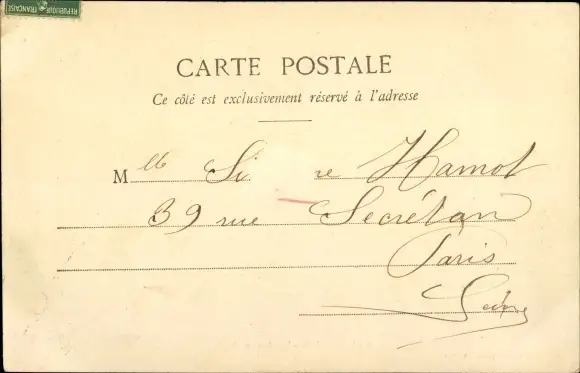 REPUBLIQUE FRANÇAISE
CARTE POSTALE
Ce côté est exclusivement réservé à l'adresse
Mlle Si re Hamot
39 rue Secrétan
Paris
Seine